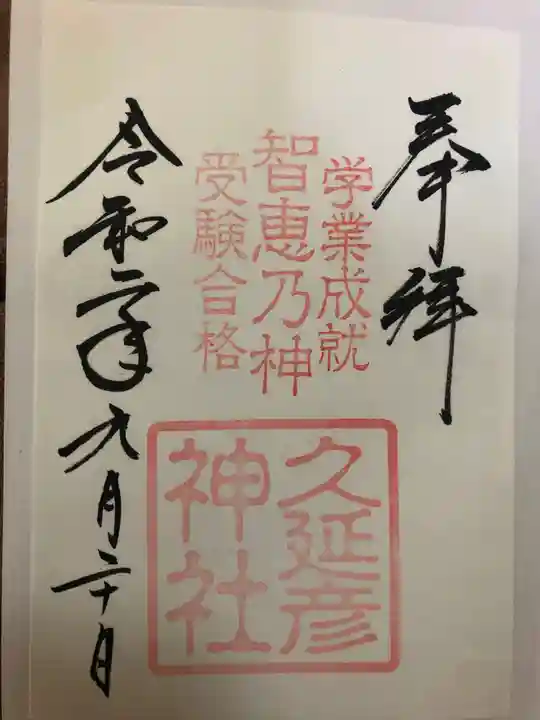 奉拝
学業成就
智恵乃神
受験合格
久延彦
神社
令和二年九月二十日